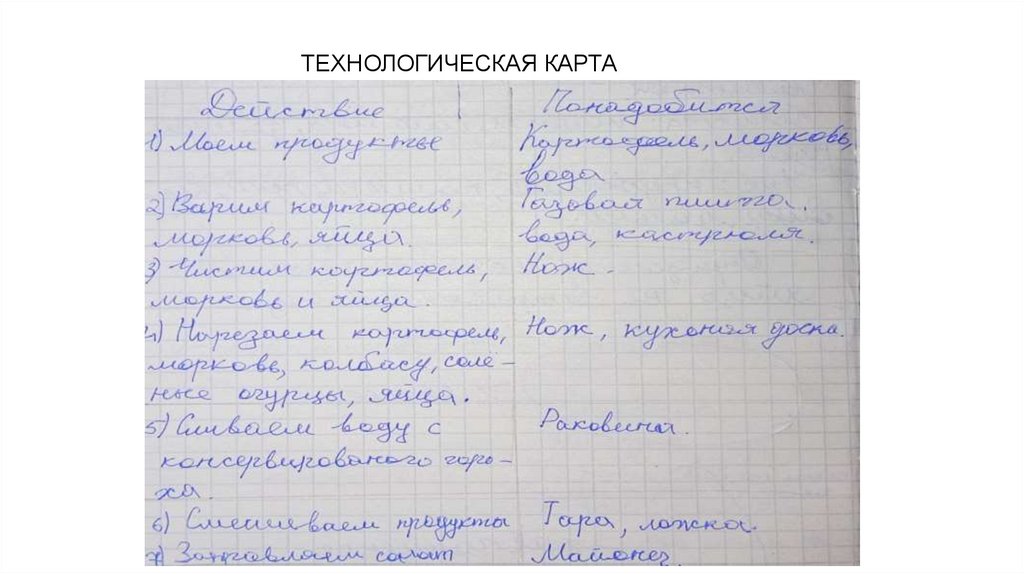 ТЕХНОЛОГИЧЕСКАЯ КАРТА
Действие | Понадобится
1) Моем продукты Картофель, морковь,
вода
2) Варим картофель, Газовая плита.
морковь, яйца. вода, кастрюля.
3) Чистим картофель, Нож.
морковь и яйца.
4) Нарезаем картофель, Нож, кухоная доска.
морковь, колбасу, солё-
ные огурцы, яйца.
5) Сливаем воду с Раковина.
консервированого горо-
ха.
6) Смешиваем продукты Тара, ложка.
7) Заправляем салат Майонез.